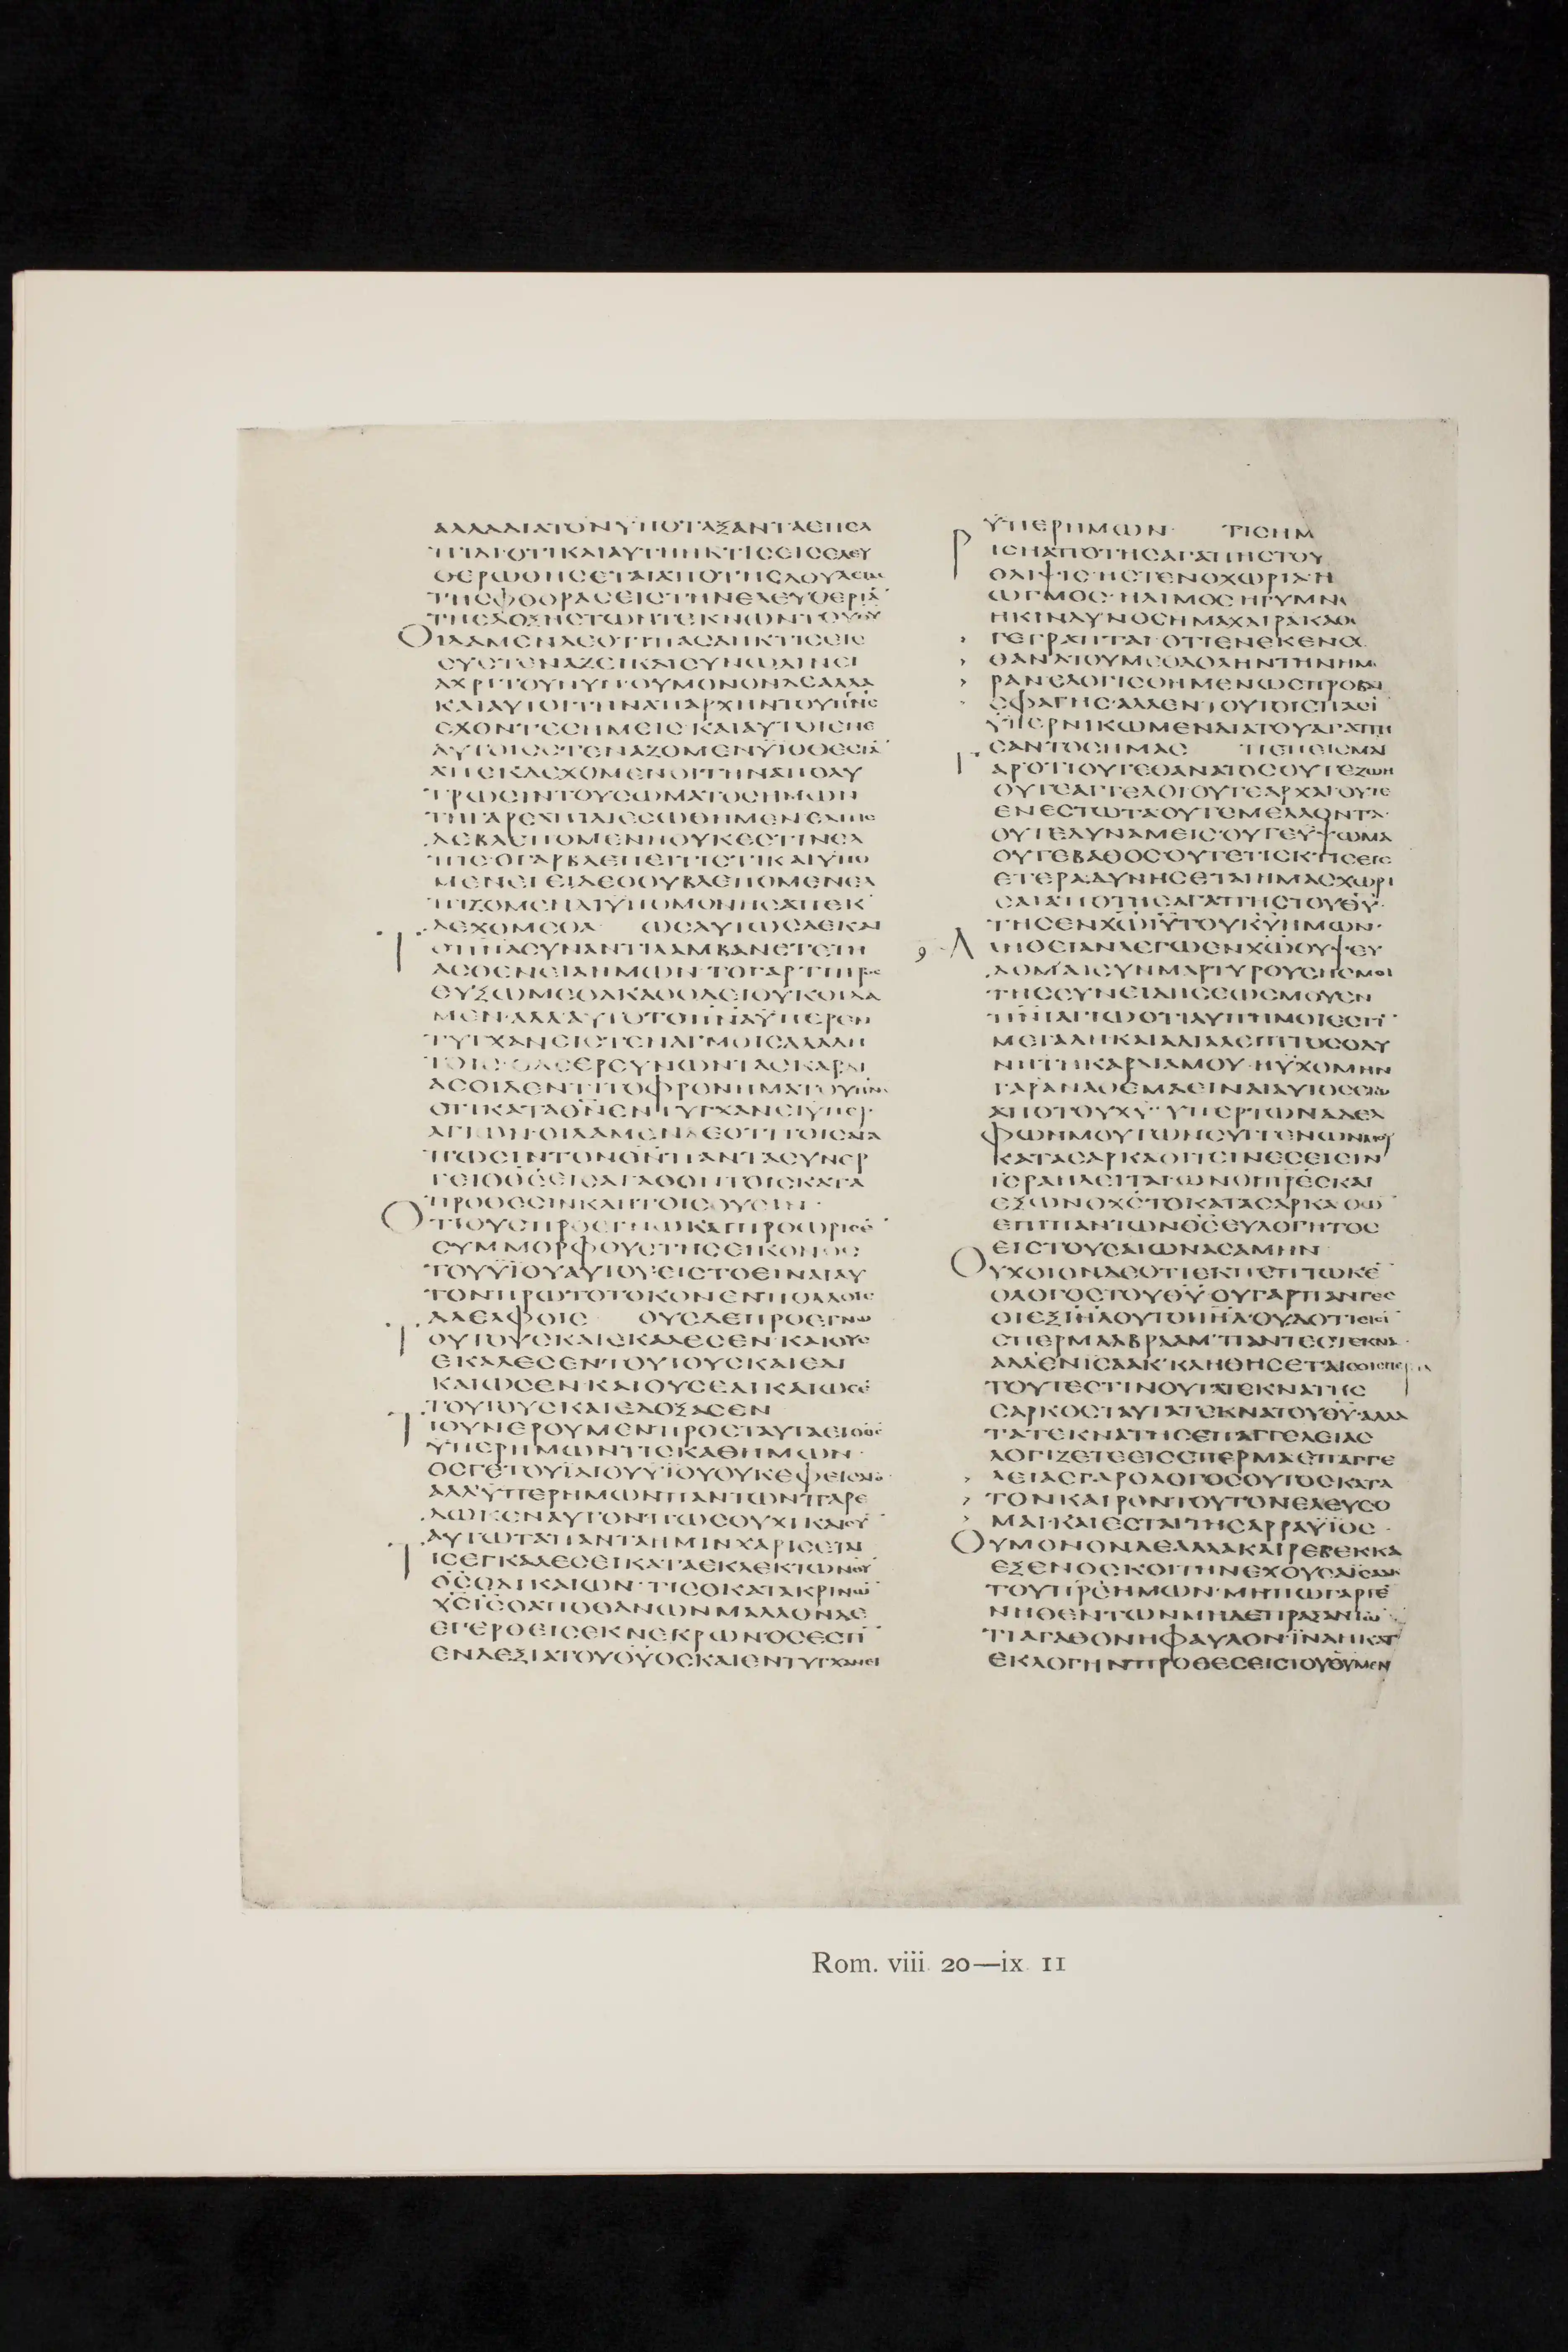 ΑΛΛΑΔΙΑΤΟΝΥΠΟΤΑΞΑΝΤΑΕΠΕΛ
ΠΙΔΙΟΤΙΚΑΙΑΥΤΗΗΚΤΙϹΕΙϹΕΛΕΥ
ΘΕΡΩΘΗϹΕΤΑΙΑΠΟΤΗϹΔΟΥΛΕΙΑϹ
ΤΗϹΦΘΟΡΑϹΕΙϹΤΗΝΕΛΕΥΘΕΡΙΑ̅
ΤΗϹΔΟΞΗϹΤΩΝΤΕΚΝΩΝΤΟΥΘ̅Υ̅
ΟΙΔΑΜΕΝΔΕΟΤΙΠΑϹΑΗΚΤΙϹΕΙϹ
ϹΥϹΤΕΝΑΖΕΙΚΑΙϹΥΝΩΔΙΝΕΙ
ΑΧΡΙΤΟΥΝΥΝ·ΟΥΜΟΝΟΝΔΕΑΛΛΑ
ΚΑΙΑΥΤΟΙΤΗΝΑΠΑΡΧΗΝΤΟΥΠ̅Ν̅Ϲ̅
ΕΧΟΝΤΕϹΗΜΕΙϹ·ΚΑΙΑΥΤΟΙΕΝΕ
ΑΥΤΟΙϹϹΤΕΝΑΖΟΜΕΝΫΙΟΘΕϹΙΑ̅
ΑΠΕΚΔΕΧΟΜΕΝΟΙΤΗΝΑΠΟΛΥ
ΤΡΩϹΙΝΤΟΥϹΩΜΑΤΟϹΗΜΩΝ
ΤΗΓΑΡΕΛΠΙΔΙΕϹΩΘΗΜΕΝΕΛΠΙϹ
ΔΕΒΛΕΠΟΜΕΝΗΟΥΚΕϹΤΙΝΕΛ
ΠΙϹ·ΟΓΑΡΒΛΕΠΕΙΤΙϹΤΙΚΑΙΥΠΟ
ΜΕΝΕΙΕΙΔΕΟΟΥΒΛΕΠΟΜΕΝΕΛ
ΠΙΖΟΜΕΝΔΙΥΠΟΜΟΝΗϹΑΠΕΚ
ΔΕΧΟΜΕΘΑ ΩϹΑΥΤΩϹΔΕΚΑΙ
ΤΟΠ̅Ν̅Α̅ϹΥΝΑΝΤΙΛΑΜΒΑΝΕΤΕΤΗ
ΑϹΘΕΝΕΙΑΗΜΩΝ·ΤΟΓΑΡΤΙΠΡΟϹ
ΕΥΞΩΜΕΘΑΚΑΘΟΔΕΙΟΥΚΟΙΔΑ
ΜΕΝ·ΑΛΛΑΥΤΟΤΟΠ̅Ν̅Α̅ΫΠΕΡΕΝ
ΤΥΓΧΑΝΕΙϹΤΕΝΑΓΜΟΙϹΑΛΑΛΗ
ΤΟΙϹ·ΟΔΕΕΡΕΥΝΩΝΤΑϹΚΑΡΔΙ
ΑϹΟΙΔΕΝΤΙΤΟΦΡΟΝΗΜΑΤΟΥΠ̅Ν̅Ϲ̅
ΟΤΙΚΑΤΑΘ̅Ν̅ΕΝΤΥΓΧΑΝΕΙΥΠΕΡ
ΑΓΙΩΝ·ΟΙΔΑΜΕΝΔΕΟΤΙΤΟΙϹΑΓΑ
ΠΩϹΙΝΤΟΝΘ̅Ν̅ΠΑΝΤΑϹΥΝΕΡ
ΓΕΙΟΘ̅Ϲ̅ΕΙϹΑΓΑΘΟΝΤΟΙϹΚΑΤΑ
ΠΡΟΘΕϹΙΝΚΛΗΤΟΙϹΟΥϹΙΝ·
ΟΤΙΟΥϹΠΡΟΕΓΝΩΚΑΙΠΡΟΩΡΙϹΕ̅
ϹΥΜΜΟΡΦΟΥϹΤΗϹΕΙΚΟΝΟϹ
ΤΟΥΫΙΟΥΑΥΤΟΥ·ΕΙϹΤΟΕΙΝΑΙΑΥ
ΤΟΝΠΡΩΤΟΤΟΚΟΝΕΝΠΟΛΛΟΙϹ
ΑΔΕΛΦΟΙϹ ΟΥϹΔΕΠΡΟΕΓΝΩ
ΟΥΤΟΥϹΚΑΙΕΚΑΛΕϹΕΝ·ΚΑΙΟΥϹ
ΕΚΑΛΕϹΕΝΤΟΥΤΟΥϹΚΑΙΕΔΙ
ΚΑΙΩϹΕΝ·ΚΑΙΟΥϹΕΔΙΚΑΙΩϹΕ̅
ΤΟΥΤΟΥϹΚΑΙΕΔΟΞΑϹΕΝ
ΤΙΟΥΝΕΡΟΥΜΕΝΠΡΟϹΤΑΥΤΑΕΙΟΘ̅Ϲ̅
ΫΠΕΡΗΜΩΝΤΙϹΚΑΘΗΜΩΝ·
ΟϹΓΕΤΟΥΙΔΙΟΥΫΙΟΥΟΥΚΕΦΕΙϹΑΤΟ
ΑΛΛΫΠΕΡΗΜΩΝΠΑΝΤΩΝΠΑΡΕ
ΔΩΚΕΝΑΥΤΟΝΠΩϹΟΥΧΙΚΑΙϹΥ̅
ΑΥΤΩΤΑΠΑΝΤΑΗΜΙΝΧΑΡΙϹΕΤΑΙ
ΤΙϹΕΓΚΑΛΕϹΕΙΚΑΤΑΕΚΛΕΚΤΩΝΘ̅Υ̅
Θ̅Ϲ̅ΟΔΙΚΑΙΩΝ·ΤΙϹΟΚΑΤΑΚΡΙΝΩ̅
Χ̅Ϲ̅Ι̅Ϲ̅ΟΑΠΟΘΑΝΩΝΜΑΛΛΟΝΔΕ
ΕΓΕΡΘΕΙϹΕΚΝΕΚΡΩΝΟϹΕϹΤΙ̅
ΕΝΔΕΞΙΑΤΟΥΘ̅Υ̅ΟϹΚΑΙΕΝΤΥΓΧΑΝΕΙ
ΫΠΕΡΗΜΩΝ· ΤΙϹΗΜ
ΙϹΗΑΠΟΤΗϹΑΓΑΠΗϹΤΟΥ
ΘΛΙΨΙϹ·ΗϹΤΕΝΟΧΩΡΙΑΗ
ΩΓΜΟϹ·ΗΛΙΜΟϹΗΓΥΜΝ
ΗΚΙΝΔΥΝΟϹΗΜΑΧΑΙΡΑΚΑΘΩ
ΓΕΓΡΑΠΤΑΙΟΤΙΕΝΕΚΕΝϹ
ΘΑΝΑΤΟΥΜΕΘΑΟΛΗΝΤΗΝΗΜΕ
ΡΑΝ·ΕΛΟΓΙϹΘΗΜΕΝΩϹΠΡΟΒΑ
ϹΦΑΓΗϹ·ΑΛΛΕΝΤΟΥΤΟΙϹΠΑϹΙ̅
ΫΠΕΡΝΙΚΩΜΕΝΔΙΑΤΟΥΑΓΑΠΗ
ϹΑΝΤΟϹΗΜΑϹ ΠΕΠΕΙϹΜΑΙ
ΓΑΡΟΤΙΟΥΤΕΘΑΝΑΤΟϹΟΥΤΕΖΩΗ
ΟΥΤΕΑΓΓΕΛΟΙΟΥΤΕΑΡΧΑΙΟΥΤΕ
ΕΝΕϹΤΩΤΑΟΥΤΕΜΕΛΛΟΝΤΑ·
ΟΥΤΕΔΥΝΑΜΕΙϹ·ΟΥΤΕΫΨΩΜΑ
ΟΥΤΕΒΑΘΟϹΟΥΤΕΤΙϹΚΤΙϹΕΙϹ
ΕΤΕΡΑ·ΔΥΝΗϹΕΤΑΙΗΜΑϹΧΩΡΙ
ϹΑΙΑΠΟΤΗϹΑΓΑΠΗϹΤΟΥΘ̅Υ̅·
ΤΗϹΕΝΧ̅Ω̅Ι̅Υ̅ΤΟΥΚ̅Υ̅ΗΜΩΝ·
ΑΛΗΘΕΙΑΝΛΕΓΩΕΝΧ̅Ω̅ΟΥΨΕΥ
ΔΟΜΑΙϹΥΝΜΑΡΤΥΡΟΥϹΗϹΜΟΙ
ΤΗϹϹΥΝΕΙΔΗϹΕΩϹΜΟΥΕΝ
Π̅Ν̅Ι̅ΑΓΙΩΟΤΙΛΥΠΗΜΟΙΕϹΤΙ̅
ΜΕΓΑΛΗΚΑΙΑΔΙΑΛΕΙΠΤΟϹΟΔΥ
ΝΗΤΗΚΑΡΔΙΑΜΟΥ·ΗΥΧΟΜΗΝ
ΓΑΡΑΝΑΘΕΜΑΕΙΝΑΙΑΥΤΟϹΕΓΩ
ΑΠΟΤΟΥΧ̅Υ̅·ΥΠΕΡΤΩΝΑΔΕΛ
ΦΩΝΜΟΥΤΩΝϹΥΓΓΕΝΩΝΜΟΥ
ΚΑΤΑϹΑΡΚΑΟΙΤΙΝΕϹΕΙϹΙΝ
ΙϹΡΑΗΛΕΙΤΑΙΩΝΟΙΠ̅Ρ̅Ε̅Ϲ̅ΚΑΙ
ΕΞΩΝΟΧ̅Ϲ̅ΤΟΚΑΤΑϹΑΡΚΑ·ΟΩ̅
ΕΠΙΠΑΝΤΩΝΘ̅Ϲ̅ΕΥΛΟΓΗΤΟϹ
ΕΙϹΤΟΥϹΑΙΩΝΑϹΑΜΗΝ
ΟΥΧΟΙΟΝΔΕΟΤΙΕΚΠΕΠΤΩΚΕ̅
ΟΛΟΓΟϹΤΟΥΘ̅Υ̅·ΟΥΓΑΡΠΑΝΤΕϹ
ΟΙΕΞΙ̅Η̅Λ̅ΟΥΤΟΙΙ̅Η̅Λ̅·ΟΥΔΟΤΙΕΙϹΙ̅
ϹΠΕΡΜΑΑΒΡΑΑΜ·ΠΑΝΤΕϹΤΕΚΝΑ·
ΑΛΛΕΝΙϹΑΑΚ·ΚΛΗΘΗϹΕΤΑΙϹΟΙϹΠΕΡΜΑ
ΤΟΥΤΕϹΤΙΝΟΥΤΑΤΕΚΝΑΤΗϹ
ϹΑΡΚΟϹΤΑΥΤΑΤΕΚΝΑΤΟΥΘ̅Υ̅·ΑΛΛΑ
ΤΑΤΕΚΝΑΤΗϹΕΠΑΓΓΕΛΕΙΑϹ
ΛΟΓΙΖΕΤΕΕΙϹϹΠΕΡΜΑΕΠΑΓΓΕ
ΛΕΙΑϹΓΑΡΟΛΟΓΟϹΟΥΤΟϹΚΑΤΑ
ΤΟΝΚΑΙΡΟΝΤΟΥΤΟΝΕΛΕΥϹΟ
ΜΑΙ·ΚΑΙΕϹΤΑΙΤΗϹΑΡΡΑΫΙΟϹ·
ΟΥΜΟΝΟΝΔΕΑΛΛΑΚΑΙΡΕΒΕΚΚΑ
ΕΞΕΝΟϹΚΟΙΤΗΝΕΧΟΥϹΑΙϹΑΑΚ
ΤΟΥΠ̅Ρ̅Ϲ̅ΗΜΩΝ·ΜΗΠΩΓΑΡΓΕ̅
ΝΗΘΕΝΤΩΝΜΗΔΕΠΡΑΞΑΝΤΩ̅
ΤΙΑΓΑΘΟΝΗΦΑΥΛΟΝ·ΪΝΑΗΚΑΤ
ΕΚΛΟΓΗΝΠΡΟΘΕϹΕΙϹΤΟΥΘ̅Υ̅ΜΕΝ
Rom. viii. 20—ix. 11